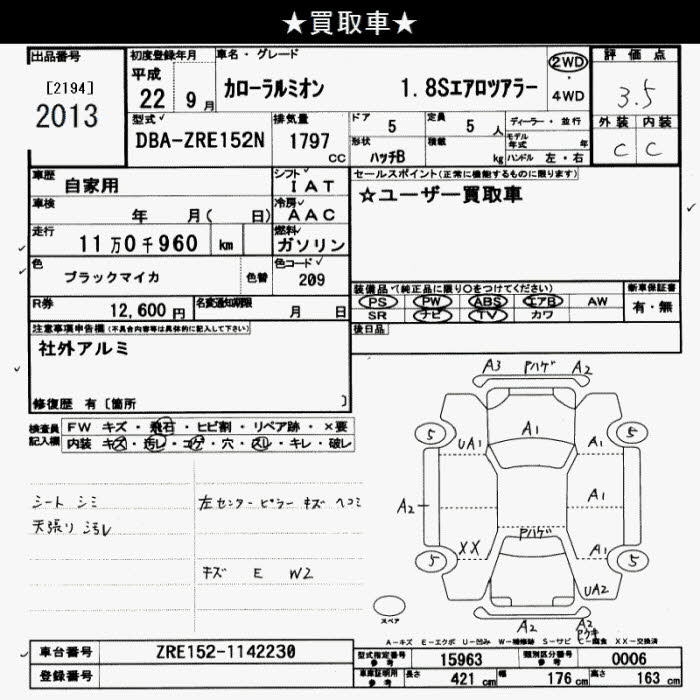 ★買取車★
出品番号
[2194]
2013
初度登録年月
平成
22 9 月
車名・グレード
カローラルミオン 1.8Sエアロツアラー
2WD
・
4WD
評価点
3.5
外装 内装
C C
型式
DBA-ZRE152N
排気量
1797
cc
ドア 5
定員 5 人
ディーラー・並行
モデル年式 年
形状 ハッチB
積載 kg
ハンドル 左・右
車歴 自家用
シフト IAT
車検 年 月( 日)
冷房 AAC
走行 11万0千960 km
燃料 ガソリン
色 ブラックマイカ 色替
色コード 209
R券 12,600円
名変通知期限 月 日
セールスポイント(正常に機能するものに限ります)
☆ユーザー買取車
装備品(純正品に限り○をつけてください)
PS PW ABS エアB AW
SR ナビ TV カワ
新車保証書
有・無
後日品
注意事項申告欄(不具合内容等は具体的に記入して下さい)
社外アルミ
修復歴 有〔箇所 〕
検査員記入欄
FW キズ・飛石・ヒビ割・リペア跡・×要
内装 キズ・汚レ・コゲ・穴・スレ・キレ・破レ
シート シミ
天張り 汚レ
左センターピラー キズ ヘコミ
キズ E W2
A3 Pハゲ A2
5 5
UA1 A1 A1
A2 A1
Pハゲ
XX A1
5 5
UA2
A2 A2
スペア
A-キズ E-エクボ U-凹み W-補修跡 S-サビ C-腐食 XX-交換済
車台番号 ZRE152-1142230
登録番号
型式指定番号 参考 15963
類別区分番号 参考 0006
車庫証明用 参考 長さ 421 cm 幅 176 cm 高さ 163 cm